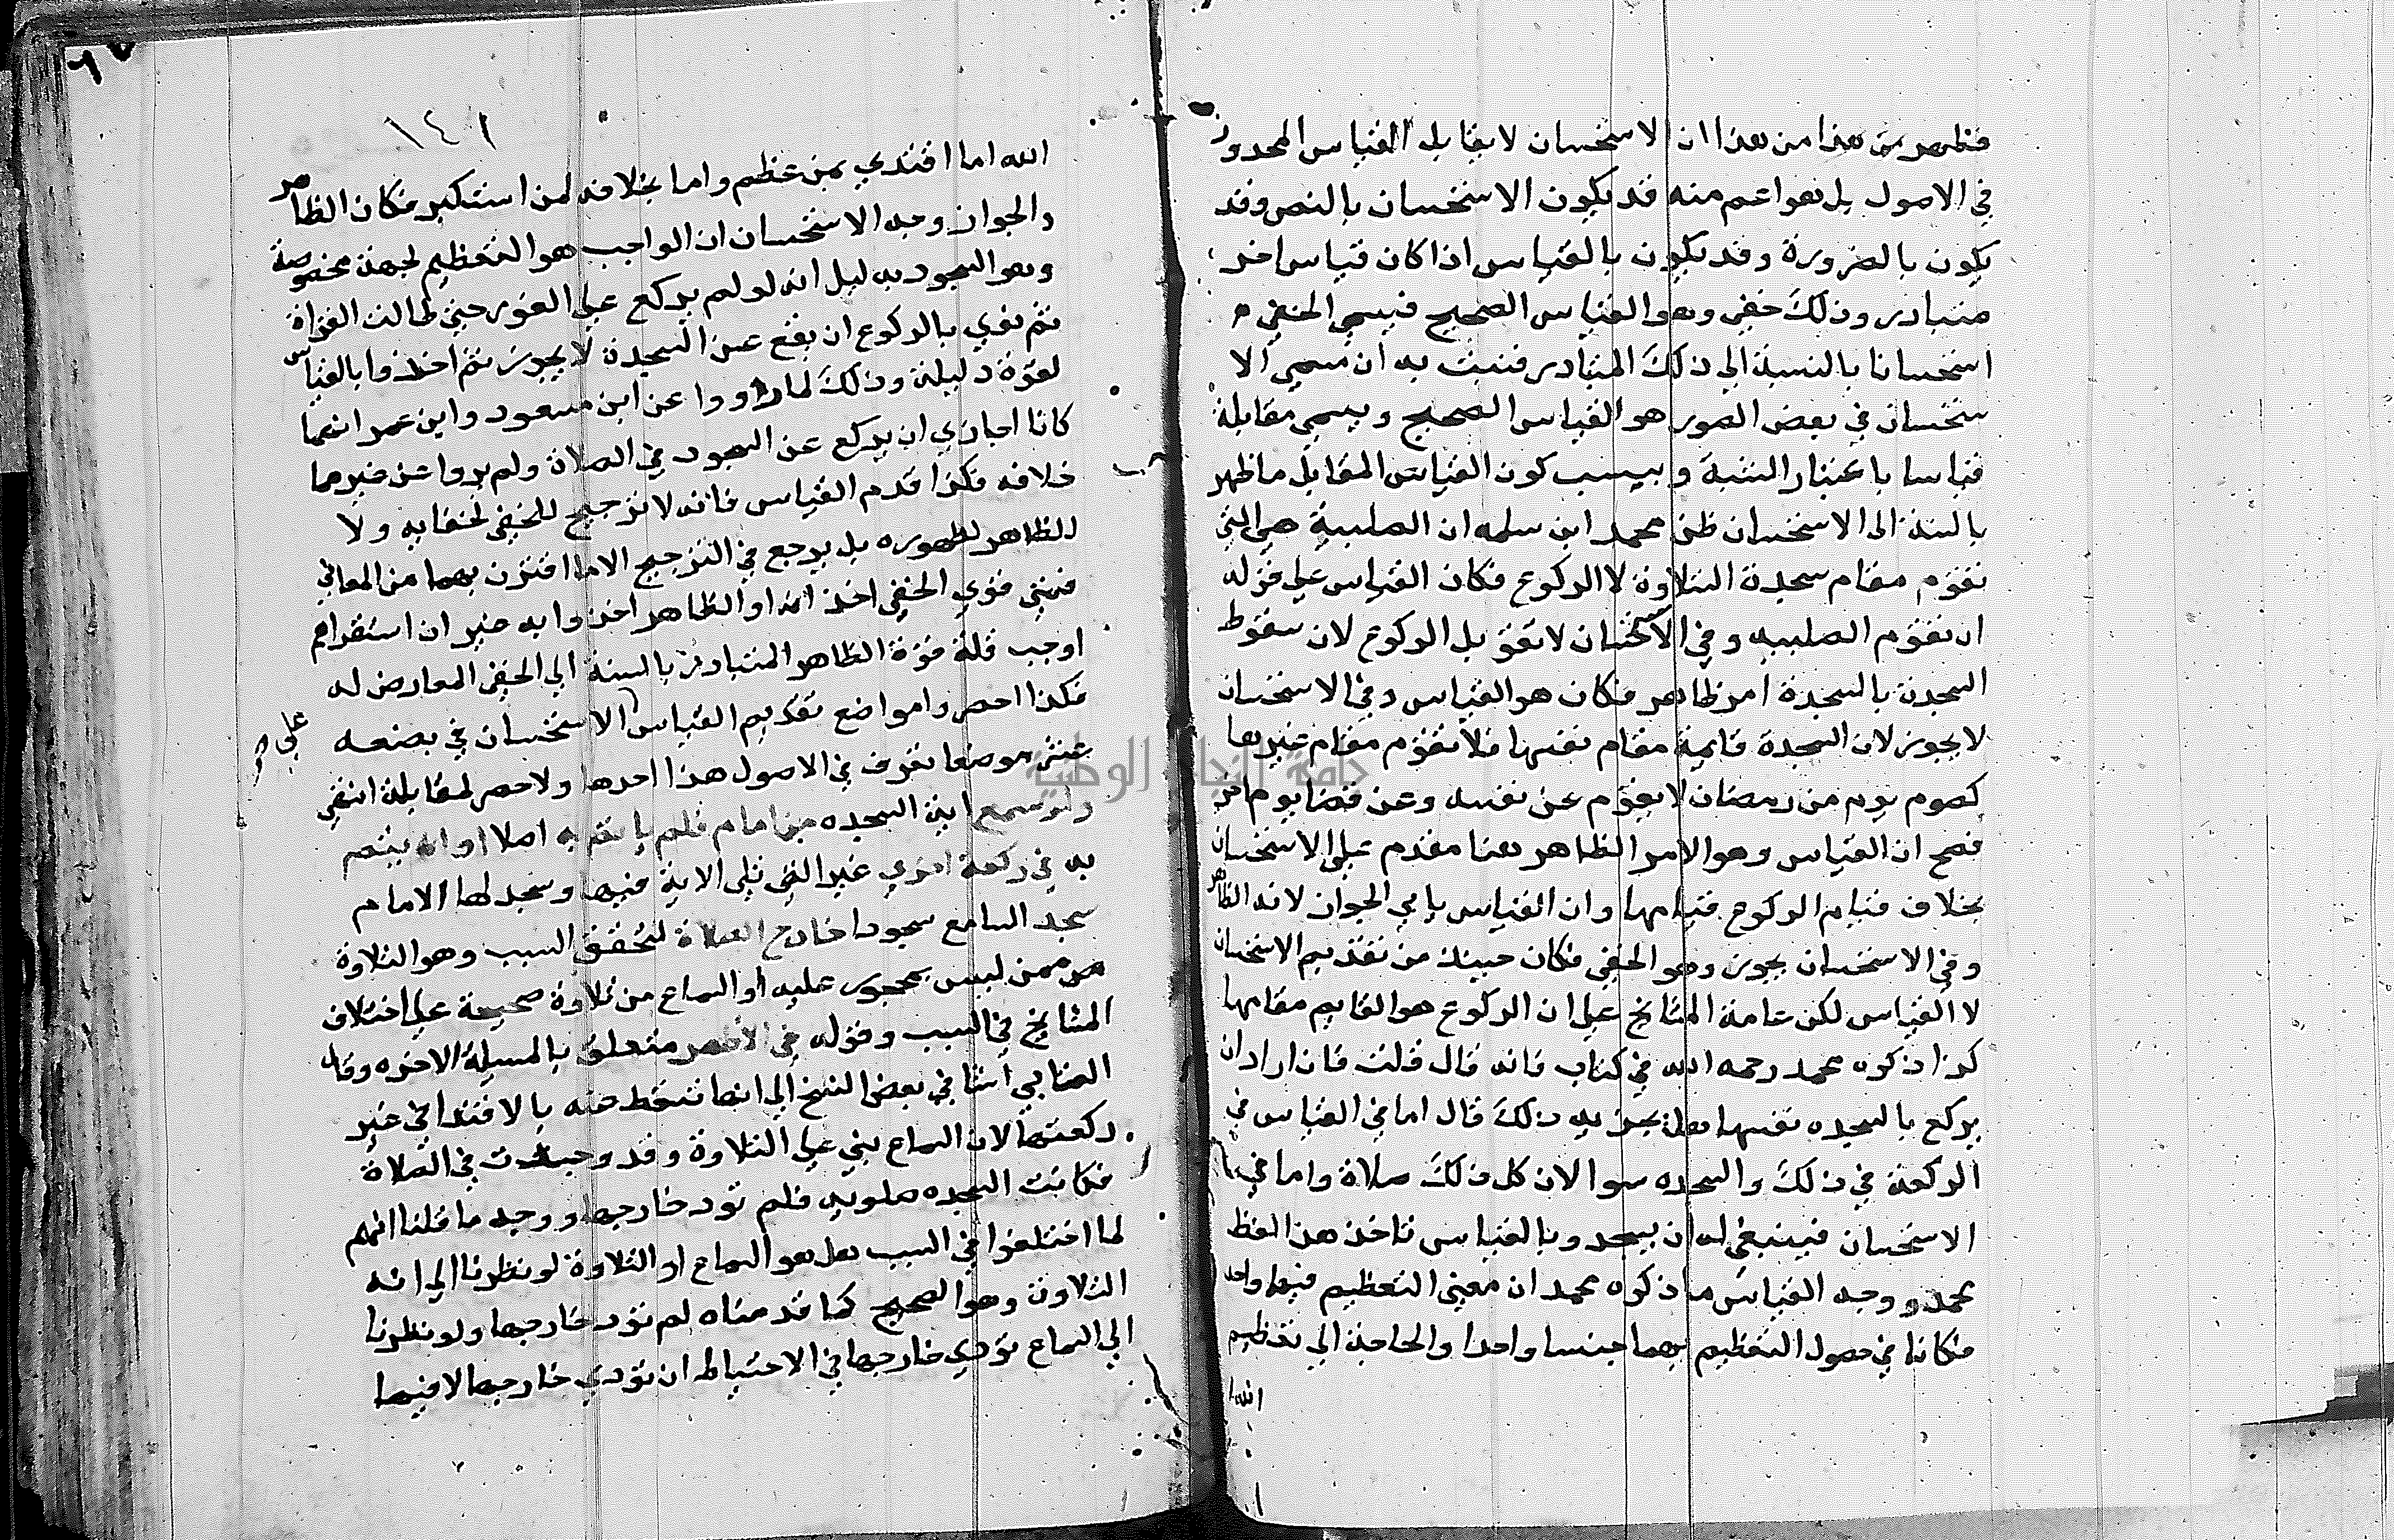 فظهر من هذا من هذا ان الاستحسان لا يقابله القياس المحدود
في الاصول بل هو اعم منه قد يكون الاستحسان بالنص وقد
يكون بالضرورة وقد يكون بالقياس اذا كان قياس اخر
متبادر وذلك خفي وهو القياس الصحيح فيسمي الخفي
استحسانا بالنسبة الي ذلك المتبادر فثبت به ان مسمي الا
ستحسان في بعض الصور هو القياس الصحيح ويسمي مقابله
قياسا باعتبار الشبه وبسبب كون القياس المقابل ما ظهر
بالنسبة الى الاستحسان ظن محمد ابن سلمه ان الصلبية هي التي
تقوم مقام سجدة التلاوة لا الركوع فكان القياس علي قوله
ان تقوم الصلبيه وفي الاستحسان لا تقو بل الركوع لان سقوط
السجدة بالسجدة امر ظاهر فكان هو القياس وفي الاستحسان
لا يجوز لان السجدة قايمة مقام نفسها فلا تقوم مقام غيرها
كصوم يوم من رمضان لا يقوم عن نفسه وعن قضا يوم اخر
فصح ان القياس وهو الامر الظاهر هنا مقدم علي الاستحسان
بخلاف قيام الركوع قيامها وان القياس يابي الجواز لانه الظاهر
وفي الاستحسان يجوز وهو الخفي فكان حينيذ من تقديم الاستحسان
لا القياس لكن عامة المشايخ علي ان الركوع هو القايم مقامها
كذا ذكره محمد رحمه الله في كتاب فانه قال قلت فان اراد ان
يركع بالسجده نفسها هل يجزيه ذلك قال اما في القياس في
الركعة في ذلك والسجده سوا لان كل ذلك صلاة واما في
الاستحسان فينبغي له ان يسجد وبالقياس ناخذ هذا لفظ
محمد ووجه القياس ما ذكره محمد ان معني التعظيم فيها واحد
فكانا في حصول التعظيم بهما جنسا واحدا والحاجة الي تعظيم
الله
١٤١
الله اما اقتدي بمن عظم واما بخلافه لمن استكبر فكان الظاهر
والجواز وجه الاستحسان ان الواجب هو التعظيم لجهة مخصوصة
وهو السجود بدليل انه لو لم يركع علي الفور حتي طالت القراة
ثم نوي بالركوع ان يقع عن السجدة لا يجوز ثم اخذوا بالقياس
لقوة دليله وذلك لما رووا عن ابن مسعود وابن عمر انهما
كانا اجازي ان يركع عن السجود في الصلاة ولم يروا عن غيرهما
خلافه فكذا قدم القياس فانه لا ترجيح للخفي لخفايه ولا
للظاهر لظهوره بل يرجع في الترجيح الا ما اقترن بهما من المعاني
فمتي قوي الخفي اخذ او الظاهر اخذوا به غير ان استقراهم
اوجب قلة قوة الظاهر المتبادر بالنسبة الي الخفي المعارض له
فكذا احصروا مواضع تقديم القياس الاستحسان في بضعه
علي
عشر موضعا تعرف في الاصول هذا احدها ولا حصر لمقابله انتهي
ولو سمع اية السجده من امام فلم ياتم به اصلا او ايتم
به في ركعة اخري غير التي تلي الاية فيها وسجد لها الامام
سجد السامع سجودا خارج الصلاة لتحقق السبب وهو التلاوة
من ممن ليس بمحجور عليه او السماع من تلاوة صحيحة علي اختلاف
المشايخ في السبب وقوله في الاظهر متعلق بالمسيلة الاخره وقال
العتابي اشا في بعض النسخ الي انها تسقط عنه بالاقتدا في غير
ركعتها لان السماع بني علي التلاوة وقد وجدت في الصلاة
فكانت السجده صلويه فلم تود خارجها ووجه ما قلنا انهم
لما اختلفوا في السبب هل هو السماع او التلاوة لو نظرنا الي انه
التلاوة وهو الصحيح كما قدمناه لم تود خارجها ولو نظرنا
الي السماع تودي خارجها في الاحتياط ان تودي خارجها لا فيها
جامعة النجاح الوطنية